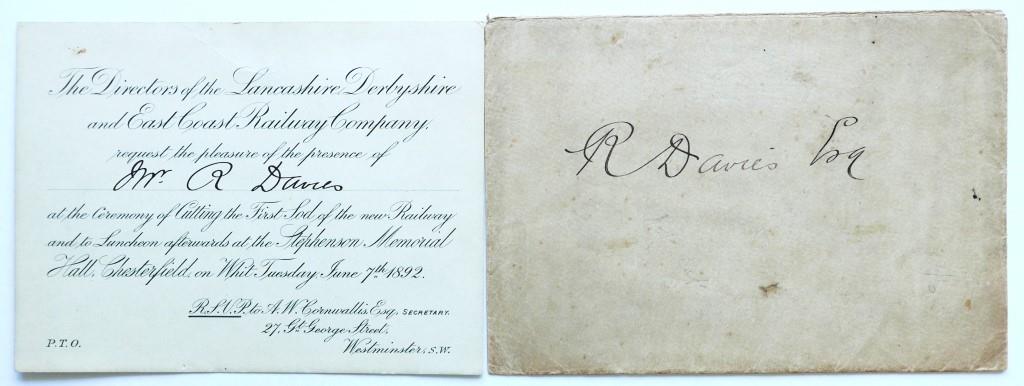 The Directors of the Lancashire, Derbyshire
and East Coast Railway Company,
request the pleasure of the presence of
Mr. R Davies
at the Ceremony of Cutting the First Sod of the new Railway
and to Luncheon afterwards at the Stephenson Memorial
Hall, Chesterfield, on Whit Tuesday, June 7th 1892.
R.S.V.P. to A.W. Cornwallis, Esq. SECRETARY.
27, Gt. George Street,
Westminster, S.W.
P.T.O.
R Davies Esq